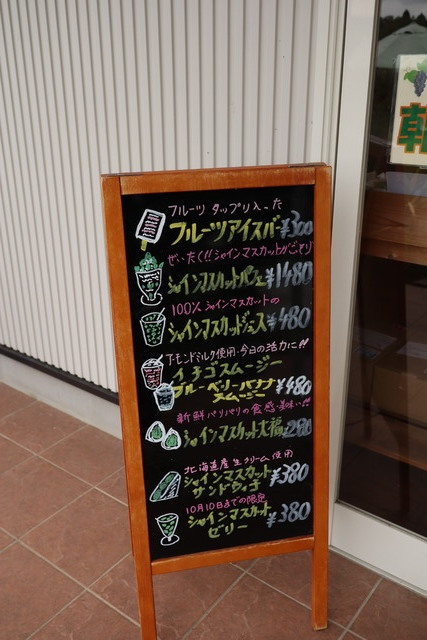 フルーツ タップリ入った
フルーツアイスバー ¥300
ぜいたく!! シャインマスカットがごっそり
シャインマスカットパフェ ¥1480
100% シャインマスカットの
シャインマスカットジュース ¥480
アーモンドミルク使用・今日の活力に!!
イチゴスムージー
ブルーベリーバナナ
スムージー ¥480
新鮮パリパリの食感・美味い!!
シャインマスカット大福 ¥280
北海道産生クリーム使用
シャインマスカット
サンドウィチ ¥380
10月10日までの限定
シャインマスカット
ゼリー ¥380